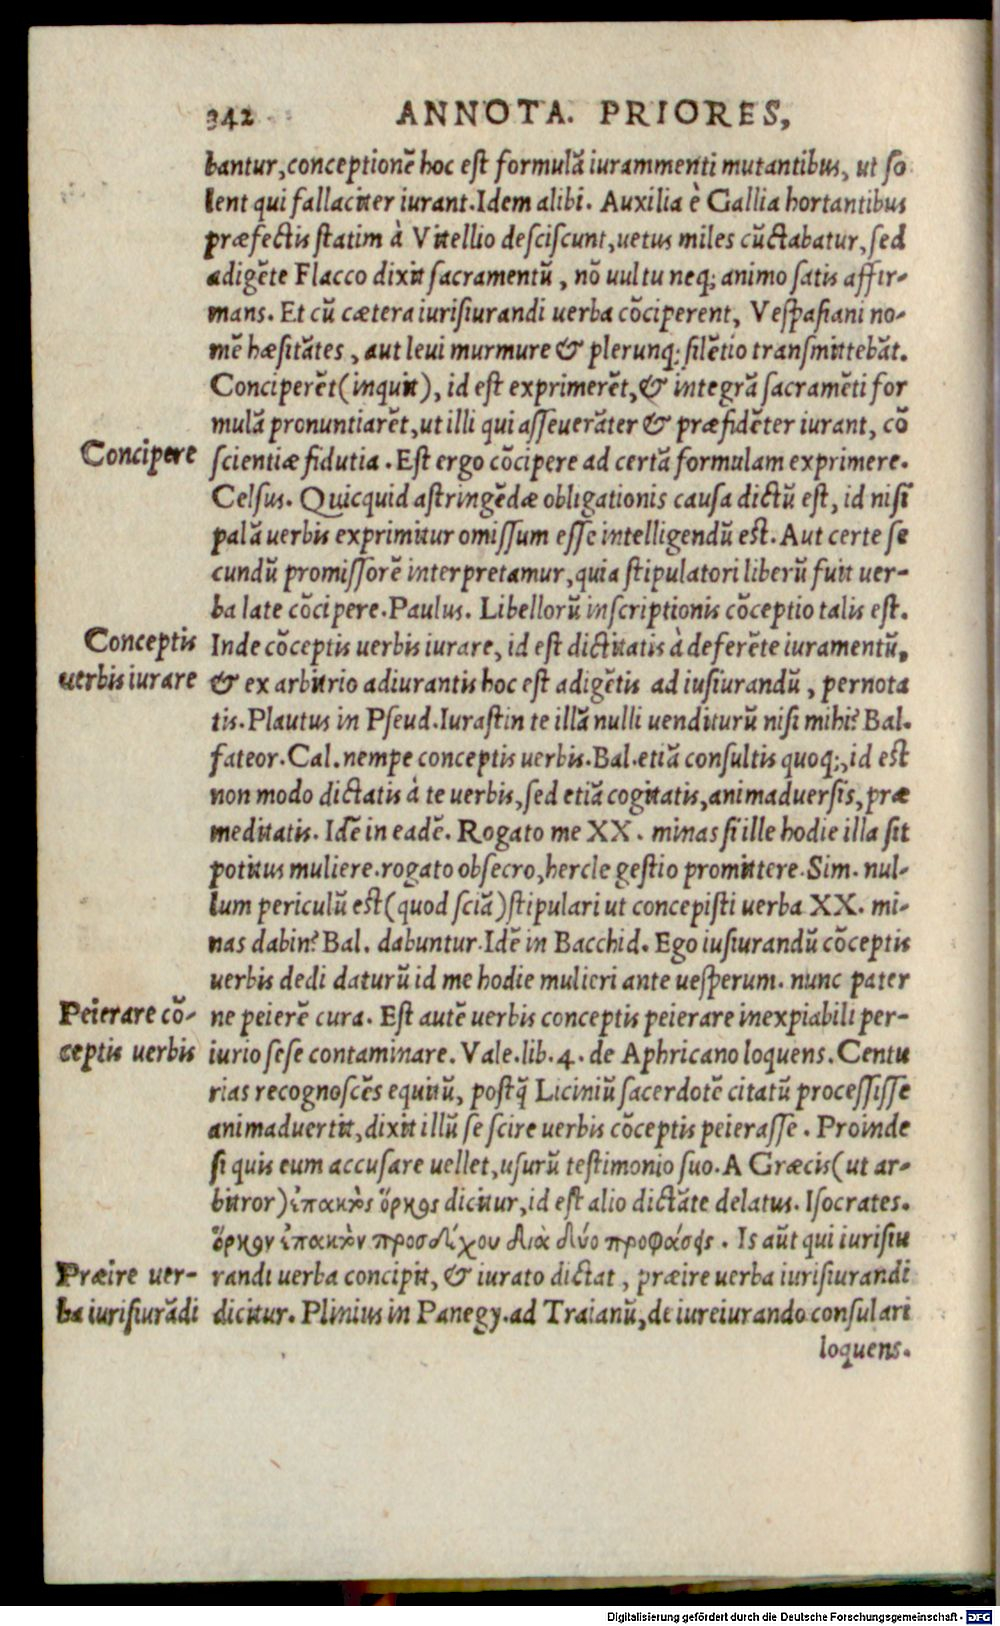 342 ANNOTA. PRIORES,
bantur, conceptionē hoc est formulā iurammenti mutantibus, ut so
lent qui fallaciter iurant. Idem alibi. Auxilia è Gallia hortantibus
præfectis statim à Vitellio desciscunt, uetus miles cūctabatur, sed
adigēte Flacco dixit sacramentū, nō uultu neq; animo satis affir-
mans. Et cū cætera iurisiurandi uerba cōciperent, Vespasiani no-
mē hæsitātes, aut leui murmure & plerunq; silētio transmittebāt.
Conciperēt (inquit), id est exprimerēt, & integrā sacramēti for
mulā pronuntiarēt, ut illi qui asseuerāter & præfidēter iurant, cō
Concipere
scientiæ fidutia. Est ergo cōcipere ad certā formulam exprimere.
Celsus. Quicquid astringēdæ obligationis causa dictū est, id nisi
palā uerbis exprimitur omissum esse intelligendū est. Aut certe se
cundū promissorē interpretamur, quia stipulatori liberū fuit uer-
ba late cōcipere. Paulus. Libellorū inscriptionis cōceptio talis est.
Conceptis
Inde cōceptis uerbis iurare, id est dictitatis à deferēte iuramentū,
uerbis iurare
& ex arbitrio adiurantis hoc est adigētis ad iusiurandū, pernota
tis. Plautus in Pseud. Iurastin te illā nulli uenditurū nisi mihi? Bal.
fateor. Cal. nempe conceptis uerbis. Bal. etiā consultis quoq;, id est
non modo dictatis à te uerbis, sed etiā cogitatis, animaduersis, præ
meditatis. Idē in eadē. Rogato me XX. minas si ille hodie illa sit
potitus muliere. rogato obsecro, hercle gestio promittere. Sim. nul-
lum periculū est (quod sciā) stipulari ut concepisti uerba XX. mi-
nas dabin? Bal. dabuntur. Idē in Bacchid. Ego iusiurandū cōceptis
uerbis dedi daturū id me hodie mulieri ante uesperum. nunc pater
Peierare cō-
ne peierē cura. Est autē uerbis conceptis peierare inexpiabili per-
ceptis uerbis
iurio sese contaminare. Vale. lib. 4. de Aphricano loquens. Centu
rias recognoscēs equitū, postq̄ Liciniū sacerdotē citatū processisse
animaduertit, dixit illū se scire uerbis cōceptis peierasse. Proinde
si quis eum accusare uellet, usurū testimonio suo. A Græcis (ut ar-
bitror) ἐπακτὸς ὅρκος dicitur, id est alio dictāte delatus. Isocrates.
ὅρκον ἐπακτὸν προσδέχου διὰ δύο προφάσεις. Is aūt qui iurisiu
Præire uer-
randi uerba concipit, & iurato dictat, præire uerba iurisiurandi
ba iurisiurādi
dicitur. Plinius in Panegy. ad Traianū, de iureiurando consulari
loquens.
Digitalisierung gefördert durch die Deutsche Forschungsgemeinschaft - DFG